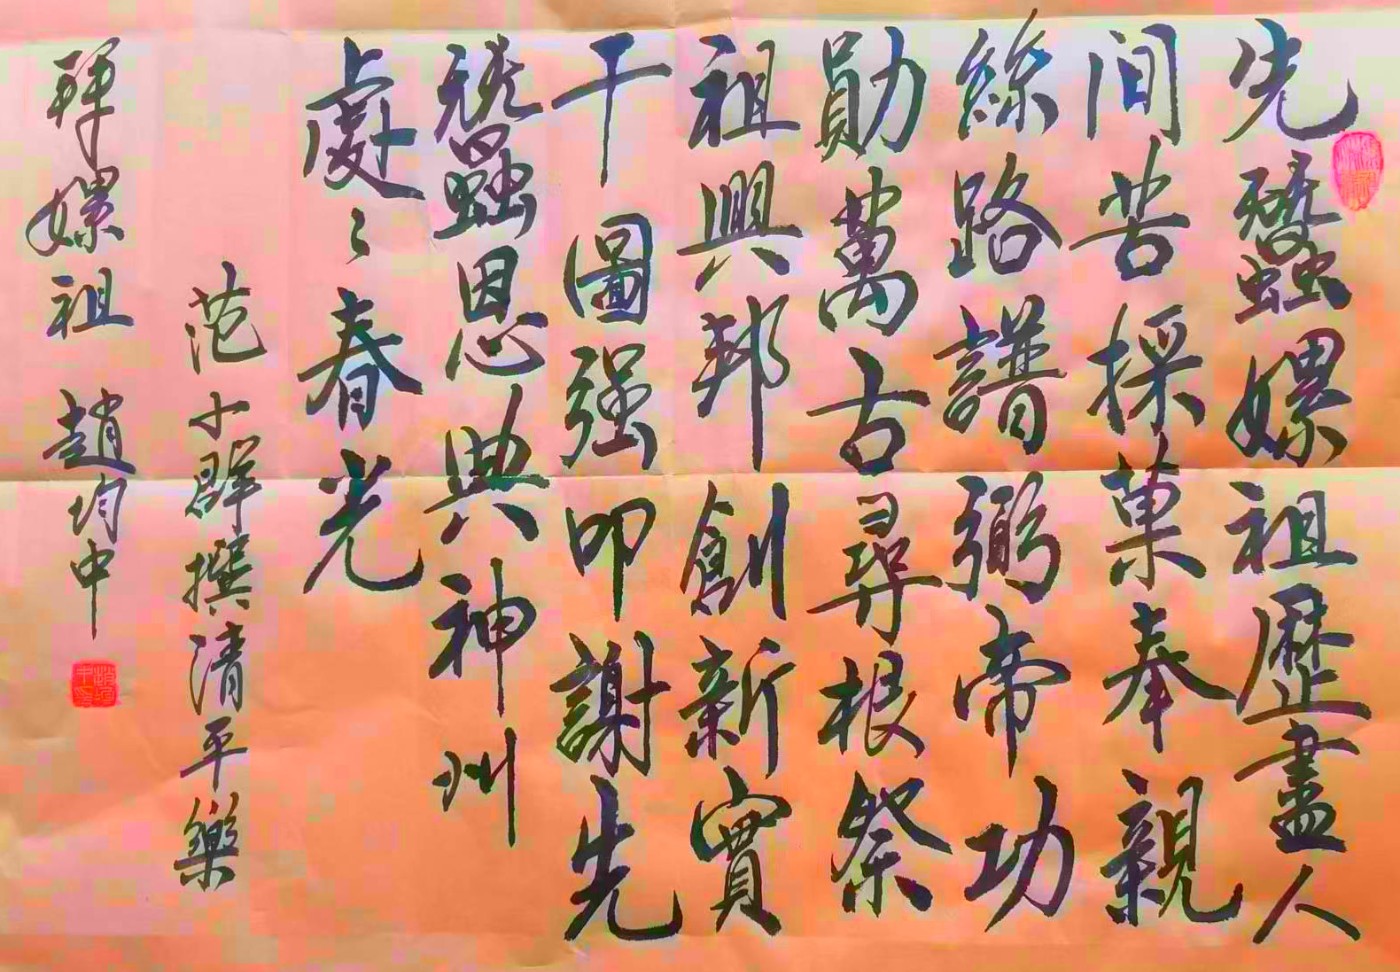 先蠶嫘祖歷盡人
间苦採菓奉親
絲路譜弼帝功
勛萬古尋根祭
祖興邦創新實
干圖强叩謝先
蠶恩典神州
處〻春光
范小群撰清平樂
拜嫘祖 趙均中